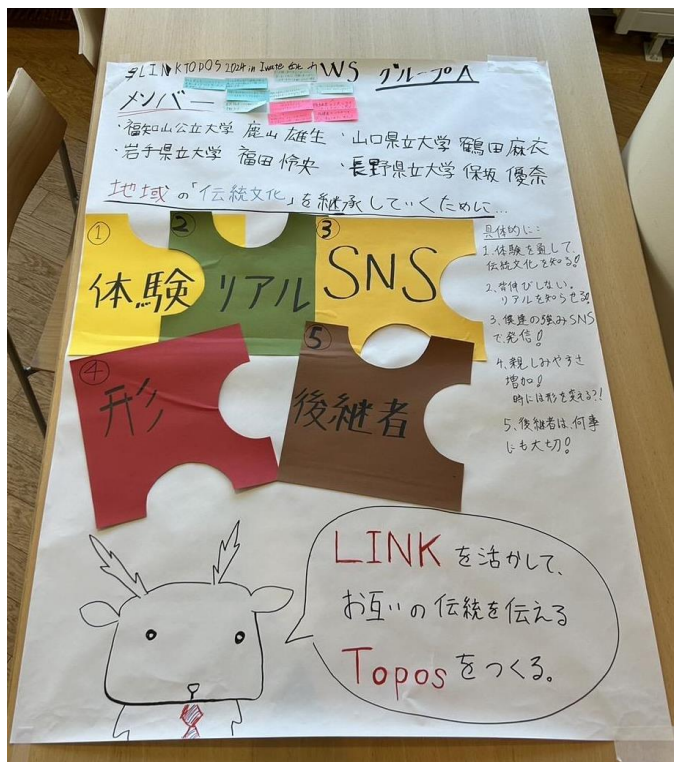 LINKTOPOS 2024 in Iwate WS グループA
メンバー
・福知山公立大学 鹿山 雄生 ・山口県立大学 鶴田麻衣
・岩手県立大学 福田 怜央 ・長野県立大学 保坂 優奈
地域の「伝統文化」を継承していくために…
① 体験
② リアル
③ SNS
④ 形
⑤ 後継者
具体的に：
1、体験を通して、
伝統文化を知る!
2、背伸びしない。
リアルを知らせる!
3、僕達の強みSNS
で発信!
4、親しみやすさ
増加!
時には形を変える?!
5、後継者は、何事
にも大切!
LINKを活かして、
お互いの伝統を伝える
Toposをつくる。